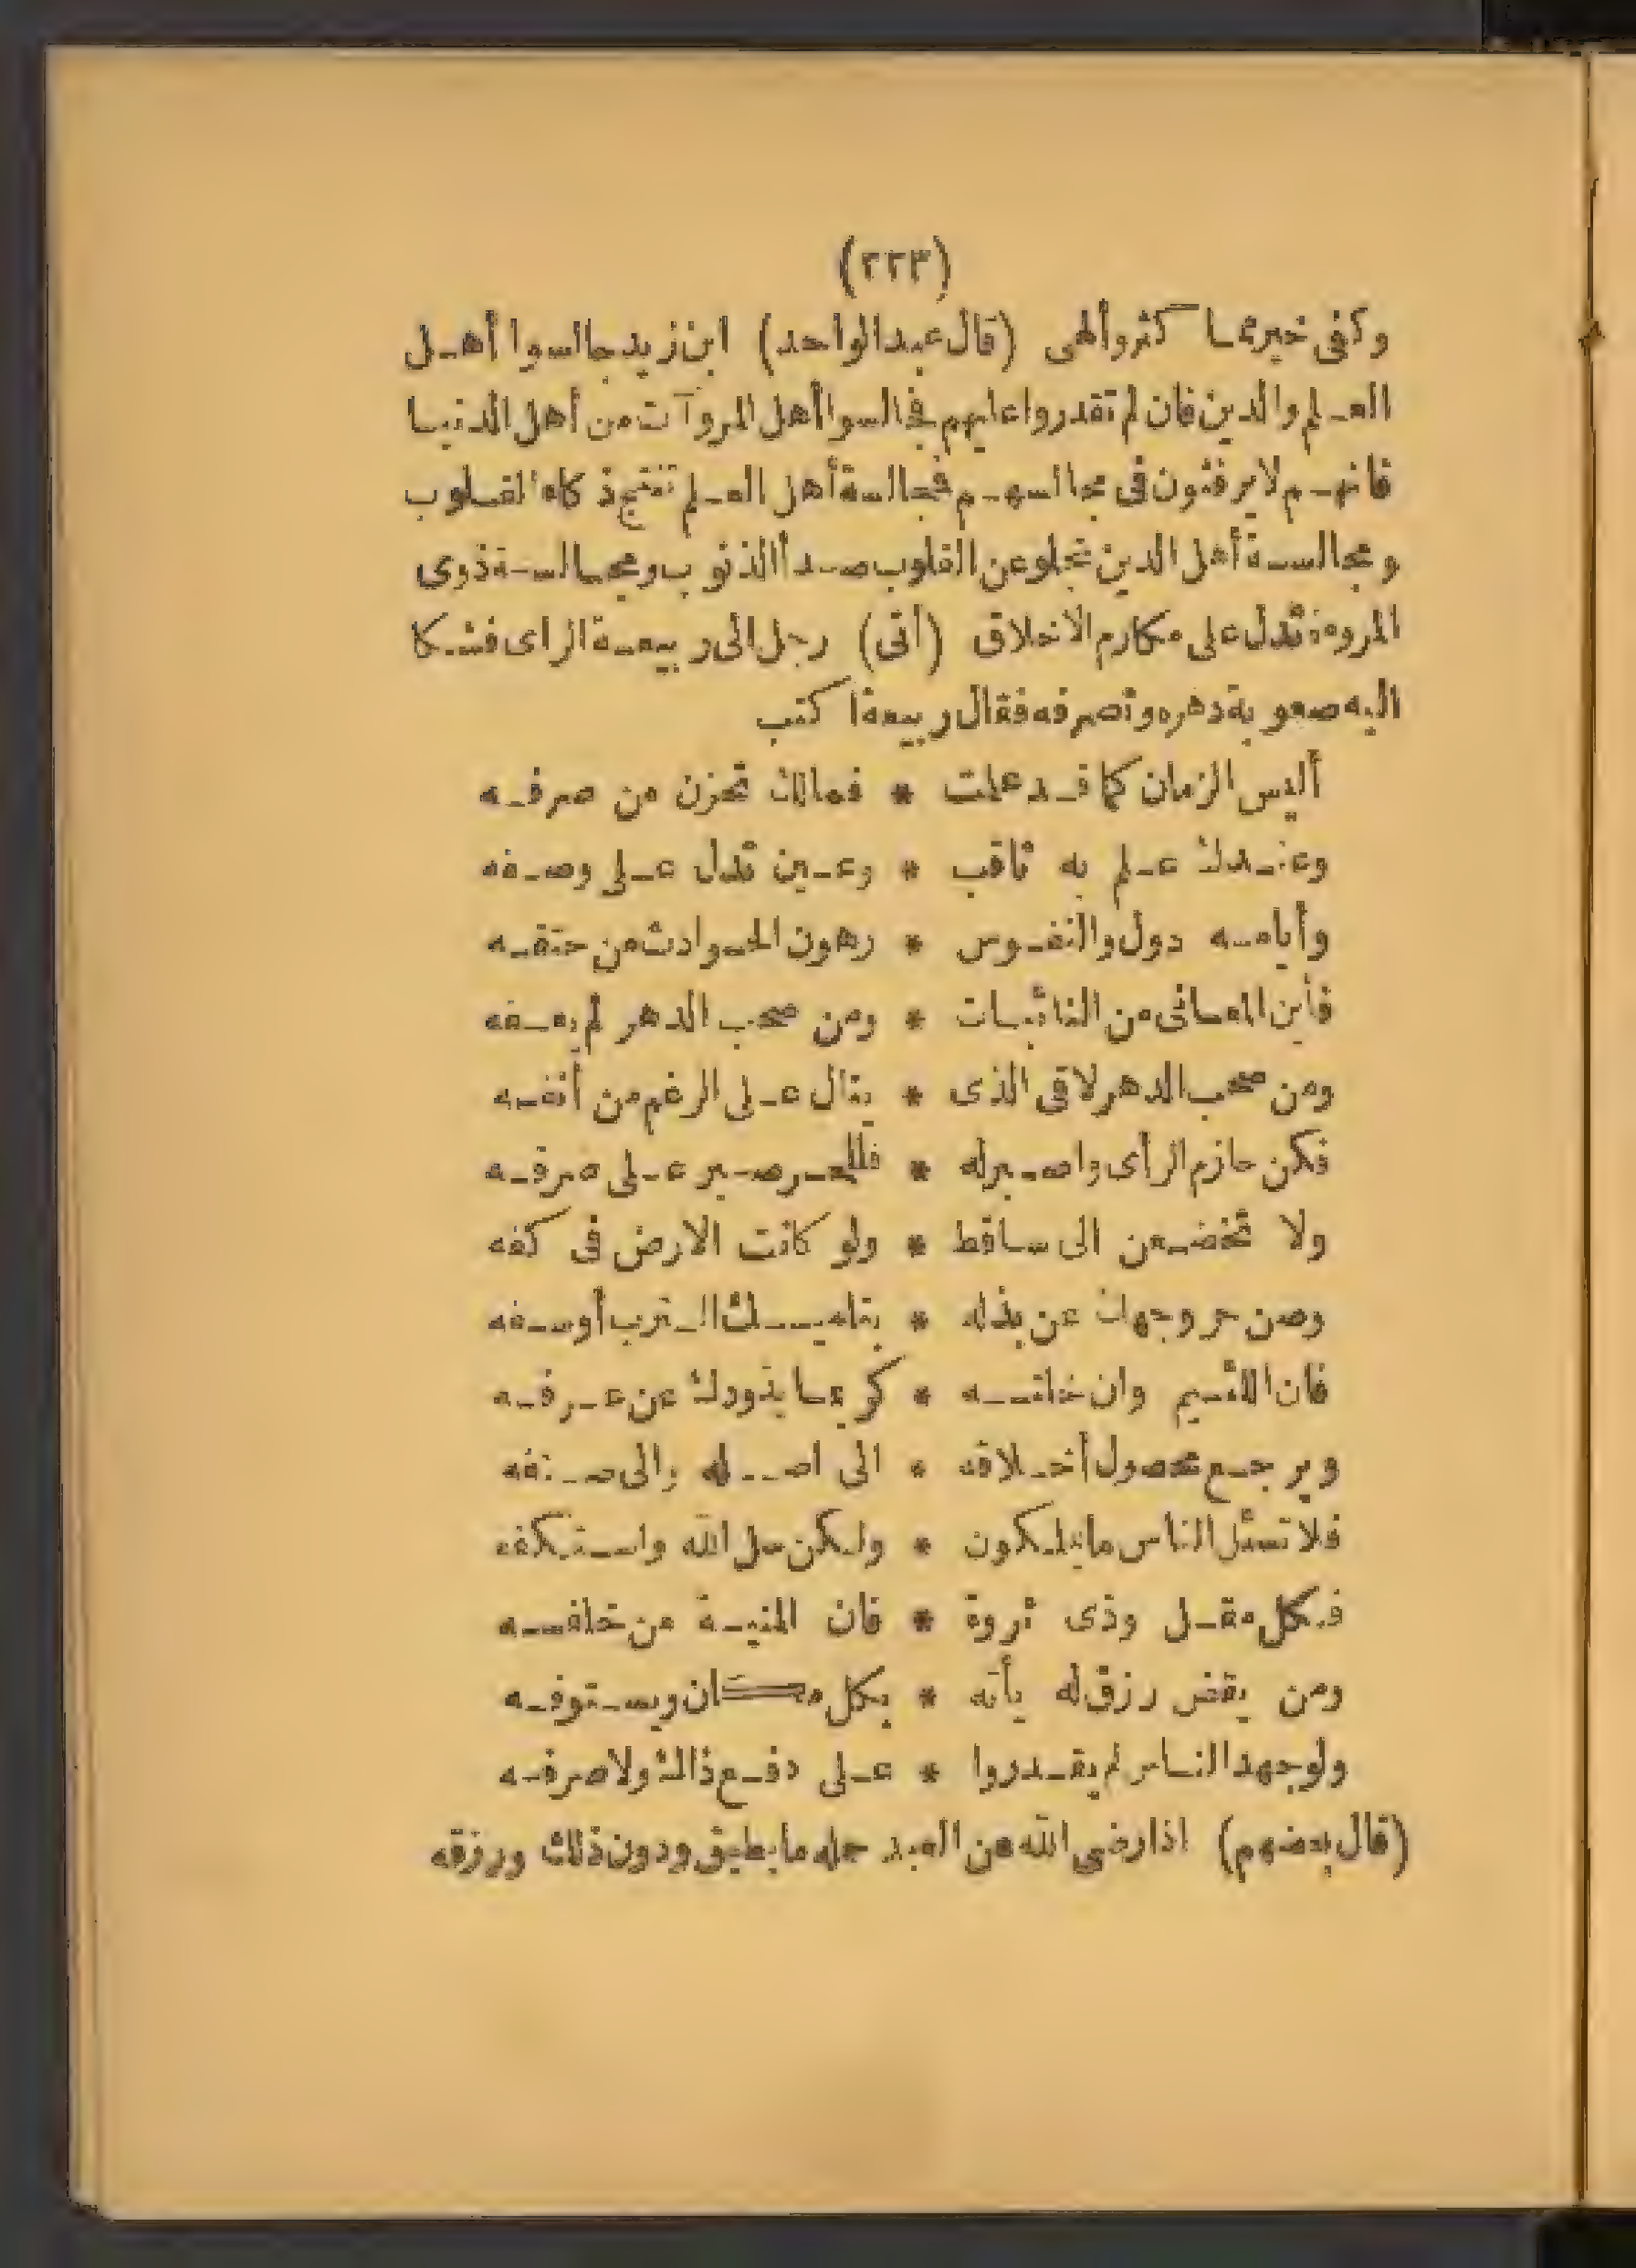 (٢٢٣)
وكفى خير مما كثر وألهى (قال عبد الواحد) ابن زيد جالسوا أهل
العلم والدين فان لم تقدروا عليهم فجالسوا أهل المروآت من أهل الدنيا
فانهم لا يرفثون فى مجالسهم فمجالسة أهل العلم تنتج ذكاء القلوب
ومجالسة أهل الدين تجلو عن القلوب صدأ الذنوب ومجالسة ذوى
المروءة تدل على مكارم الاخلاق (أتى) رجل الى ربيعة الراى فشكا
اليه صعوبة دهره وتصرفه فقال ربيعة اكتب
أليس الزمان كما قد علمت * فمالك تحزن من صرفه
وعندك علم به ثاقب * وعين تدل على وصفه
وأيامه دول والنفوس * رهون الحوادث من حتفه
فأين المعافى من النائبات * ومن صحب الدهر لم يعفه
ومن صحب الدهر لاقى الذى * ينال على الرغم من أنفه
فكن حازم الرأى واصبر له * فللحر صبر على صرفه
ولا تخضعن الى ساقط * ولو كانت الارض فى كفه
وصن حر وجهك عن بذله * بتلميسك الترب أوسفه
فان اللئيم وان خلته * كريما يذودك عن عرفه
ويرجع محصول أخلاقه * الى اصله والى صنفه
فلا تسئل الناس ما يملكون * ولكن سل الله واستكفه
فكل مقل وذى ثروة * فان المنية من خلفه
ومن يقض رزق له يأته * بكل مكان ويستوفه
ولو جهد الناس لم يقدروا * على دفع ذالك ولا صرفه
(قال بعضهم) اذا رضى الله عن العبد حمله ما يطيق ودون ذلك ورزقه